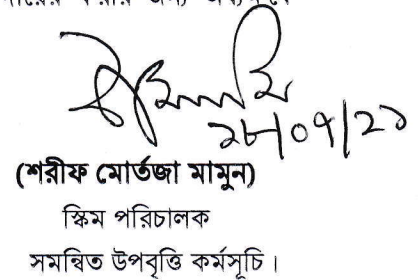 ২৮/০৭/২১
(শরীফ মোর্তজা মামুন)
স্কিম পরিচালক
সমন্বিত উপবৃত্তি কর্মসূচি।